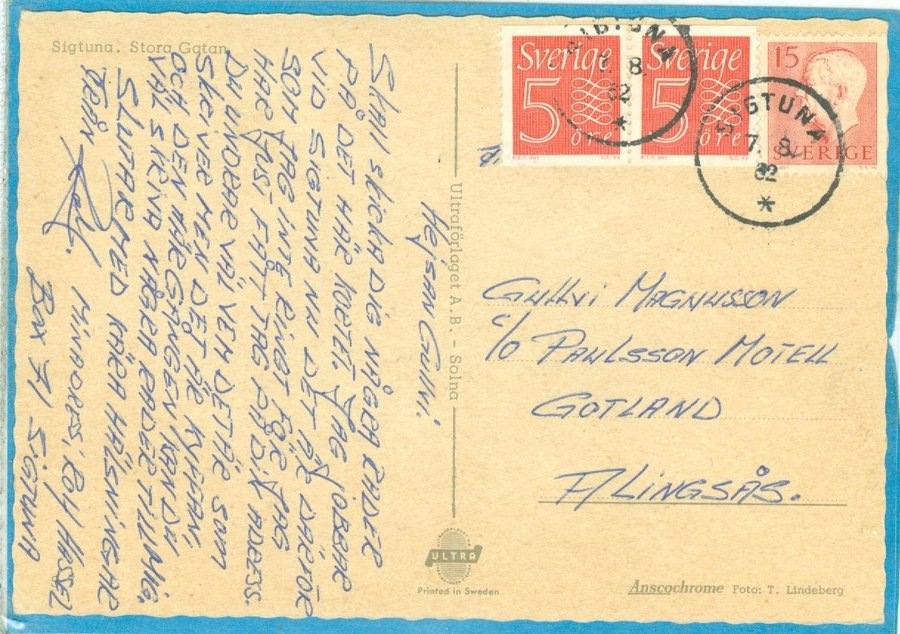 Sigtuna. Stora Gatan
Hejsan Gullvi.
SKALL SKICKA DIG NÅGRA RADER
PÅ DET HÄR KORTET. JAG JOBBAR
VID SIGTUNA NU DET ÄR DÄRFÖR
SOM JAG INTE RINGT FÖR JAG
HAR JUST FÅTT TAG PÅ DIN ADRESS.
DU UNDRAR VÄL VEM DET ÄR SOM
SKRIVER MEN DET ÄR
OCH DEN HÄR GÅNGEN KAN DU
VÄL SKRIVA NÅGRA RADER TILL MIG.
SLUTAR MED KÄRA HÄLSNINGAR
FRÅN
MIN ADRESS, ROY HASSEL
Box 71 SIGTUNA
Ultraförlaget A.B. - Solna
ULTRA
Printed in Sweden
Sverige
5 öre
Sverige
5 öre
15
SVERIGE
SIGTUNA
7. 8.
62
*
SIGTUNA
7. 8.
62
*
GULLVI MAGNUSSON
c/o PAULSSON MOTELL
GOTLAND
ALINGSÅS.
Anscochrome Foto: T. Lindeberg